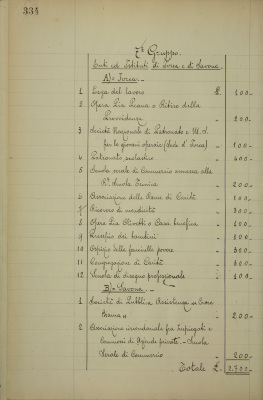 334
7° Gruppo.
Enti ed Istituti di Ivrea e di Savona
A)= Ivrea. -
1 Borsa del lavoro £. 100 -
2 Opera Pia Peana e Ritiro della
Provvidenza - 200 -
3 Società Nazionale di Patronato e M. S.
per le giovani operaie (Sede d'Ivrea) - 100 -
4 Patronato scolastico - 400 -
5 Scuola serale di Commercio annessa alla
Ra. Scuola Tecnica - 200 -
6 Associazione delle Dame di Carità - 100 -
7 Ricovero di mendicità - 300 -
8 Opera Pia Olivetti o Casa benefica - 100 -
9 dei bambini
10 Ospizio delle fanciulle povere - 300 -
11 Congregazione di Carità
12 Scuola di disegno professionale - 100 -
B)= Savona. -
1 Società di Pubblica Assistenza "Croce
Bianca" - 200 -
2 Associazione circondariale fra Impiegati e
Commessi di Aziende private - Scuola
Serale di Commercio - 200 -
Totale £.